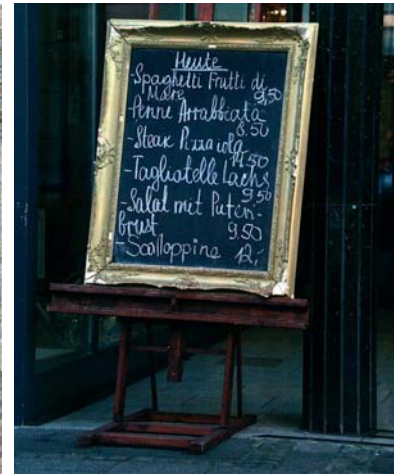 Heute
-Spaghetti Frutti di
Mare 9,50
-Penne Arrabbiata
8.50
-Steak Pizzaiola
11.50
-Tagliatelle Lachs
9,50
-Salat mit Puten-
brust 9.50
-Scalloppine 12,-